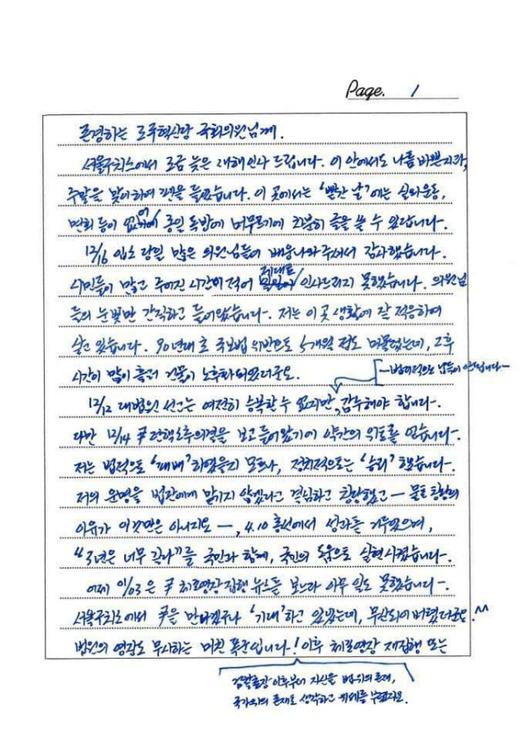 Page. 1
존경하는 조국혁신당 국회의원님께.
서울구치소에서 조금 늦은 새해인사 드립니다. 이 안에서도 나름 바쁜지라,
주말을 맞이하여 펜을 들었습니다. 이 곳에서는 '빨간 날'에는 실외운동,
면회 등이 없어 종일 독방에 머무르기에 차분히 글을 쓸 수 있답니다.
12/16 입소 당일 많은 의원님들이 배웅나와 주셔서 감사했습니다.
시민들이 많고 주어진 시간이 적어 제대로 인사드리지 못했습니다. 의원님
들의 눈빛만 간직하고 들어왔습니다. 저는 이 곳 생활에 잘 적응하여
살고 있습니다. 90년대 초 국보법 위반으로 5개월 정도 머물렀는데, 그후
시간이 많이 흘러 건물이 노후화되었더군요.
12/12 대법원 선고는 여전히 승복할 수 없지만, 감수해야 합니다.
다만 12/14 尹 탄핵소추의결을 보고 들어왔기에 약간의 위로를 얻습니다.
저는 법적으로 '패배'하였을지 모르나, 정치적으로는 '승리'했습니다.
저의 운명을 법원에게 맡기지 않겠다고 결심하고 창당했고 — 물론 창당의
이유가 이것만은 아니지요 —, 4.10 총선에서 성과를 거두었으며,
"3년은 너무 길다"를 국민과 함께, 국민의 도움으로 실현시켰습니다.
어제 1/03은 尹 체포영장 집행 뉴스를 보느라 아무 일도 못했습니다.
서울구치소에서 尹을 만나겠구나 '기대'하고 있었는데, 무산되어 버렸더군요. ^^
법원의 영장도 무시하는 미친 폭군입니다! 이후 체포영장 재집행 또는
검찰총장 이후부터 자신을 법 위의 존재,
국가 위의 존재로 생각하고